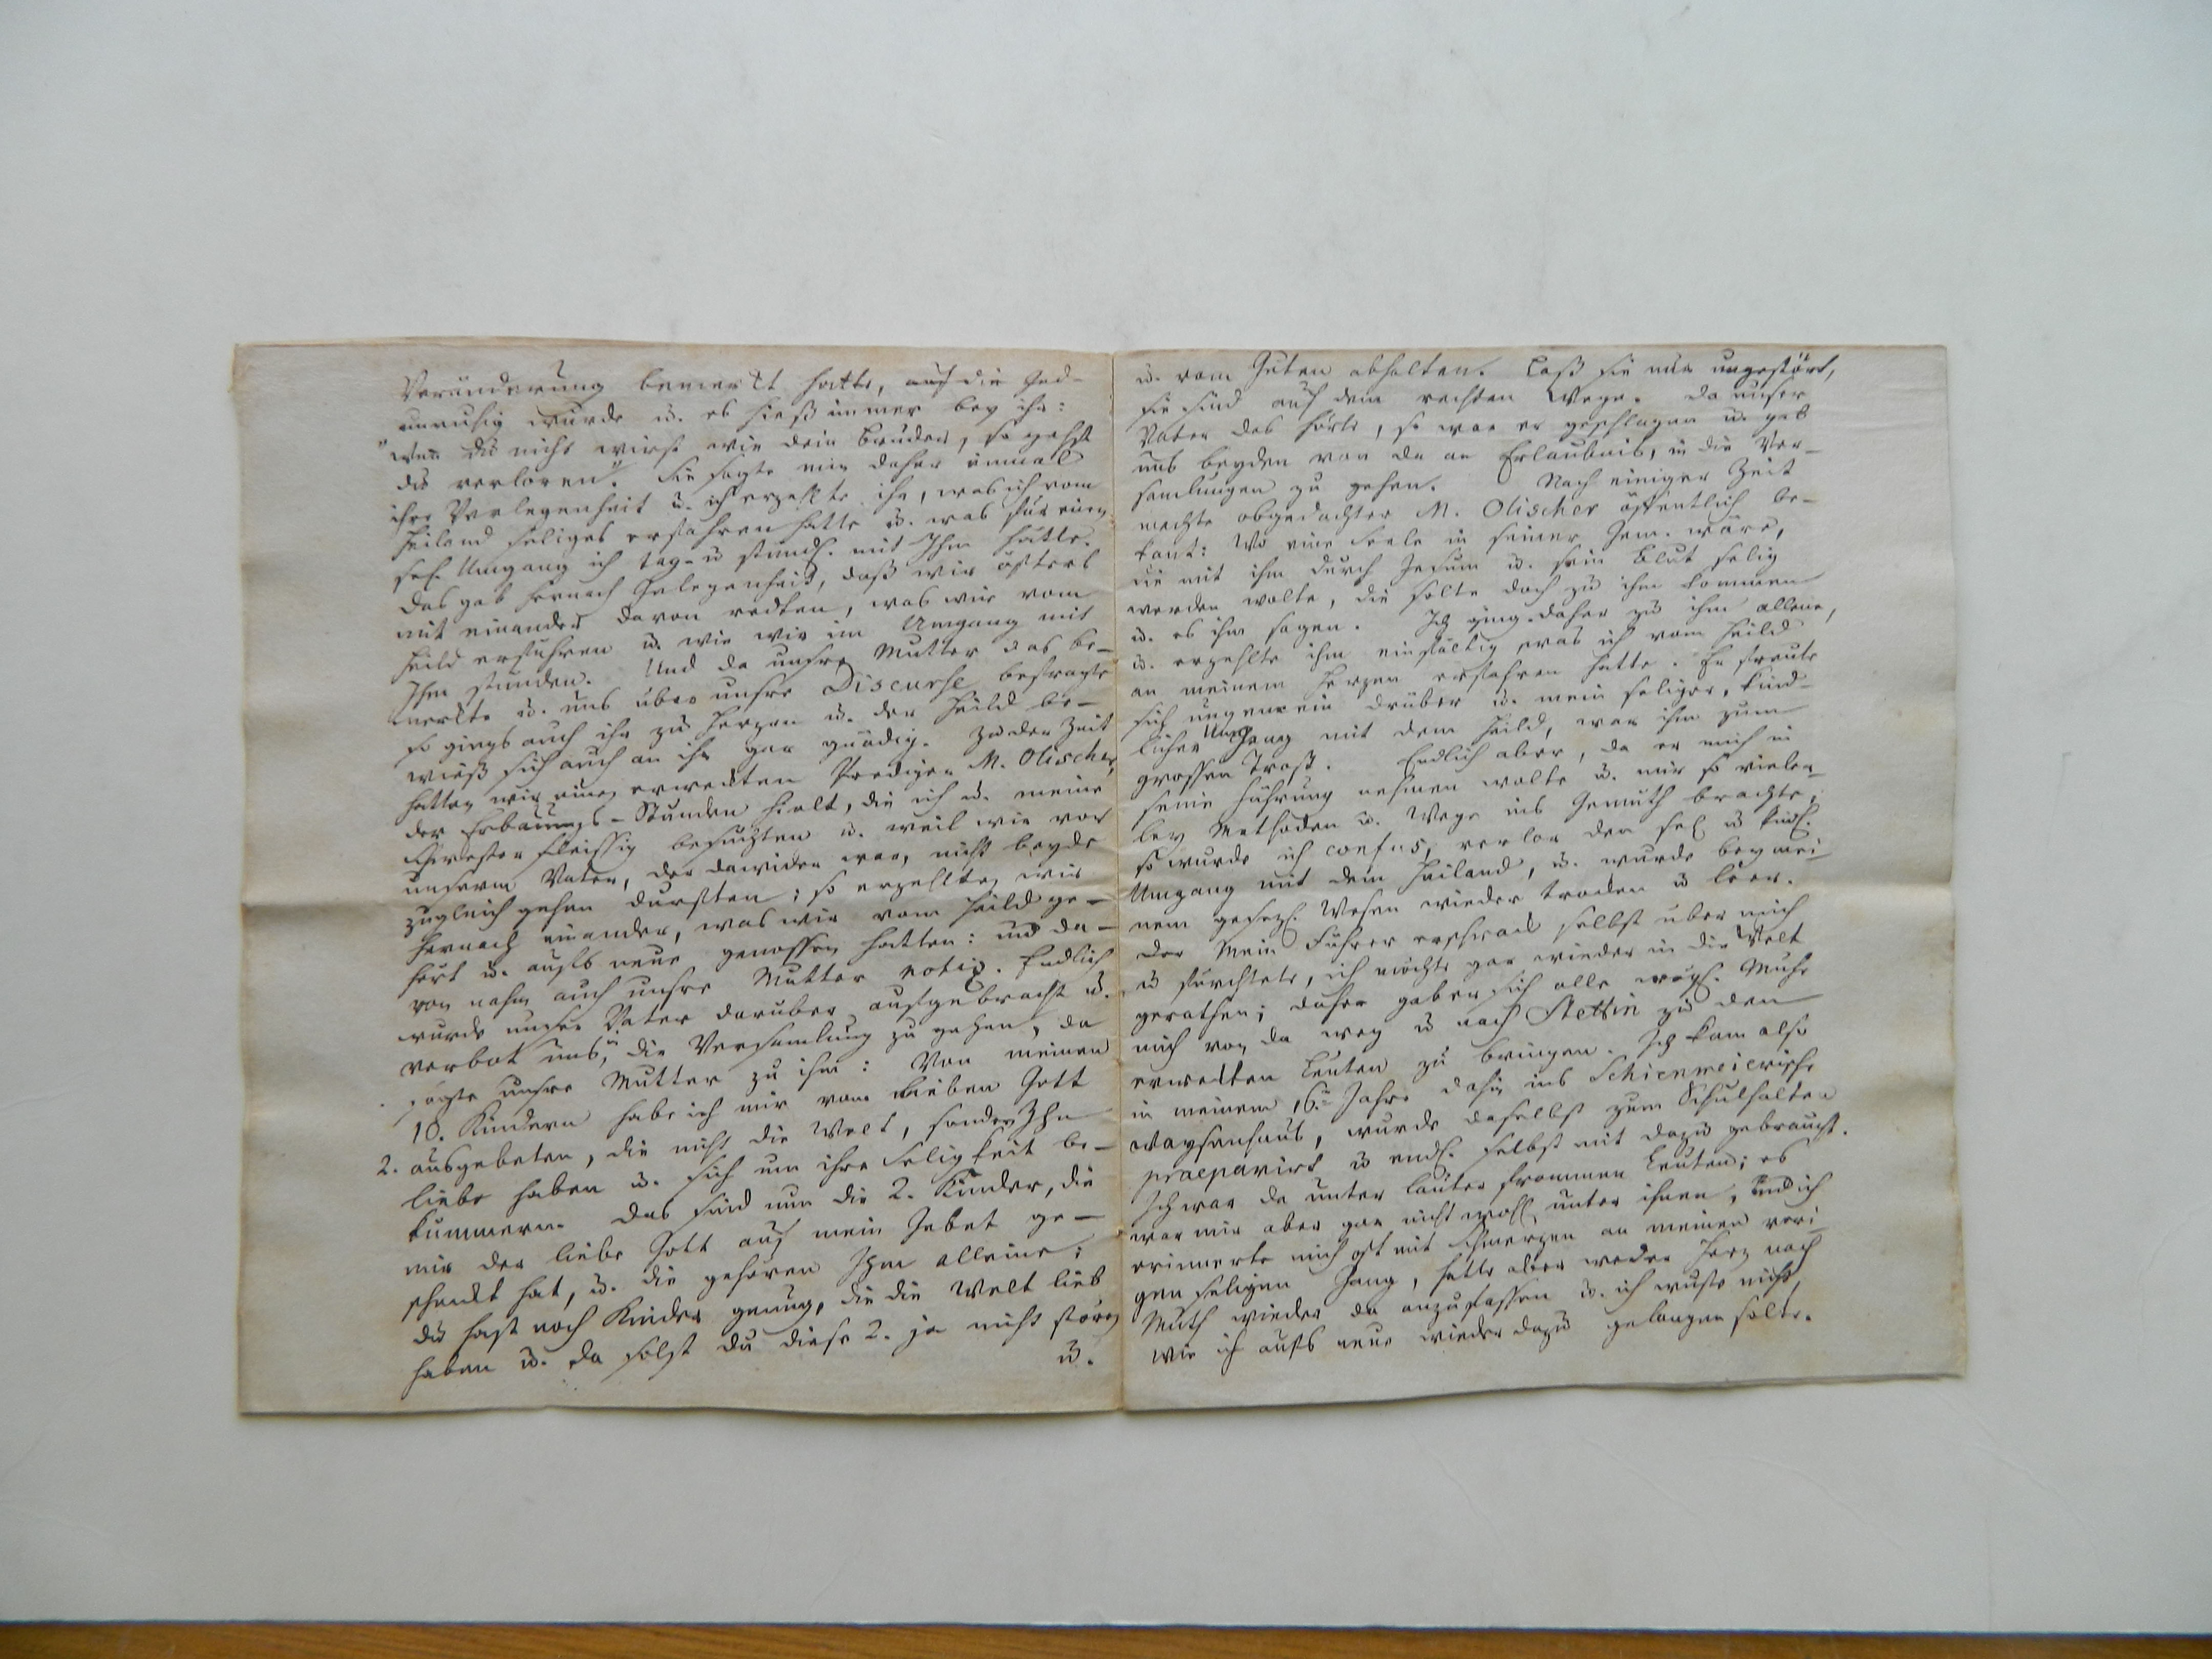 Veränderung bemerkt hatte, auf die Ged-
unruhig wurde u. es hieß immer bey ihr:
"Wenn du nicht wirst wie dein Bruder, so gehst
du verloren." Sie sagte mir daher einmal
ihre Verlegenheit u. ich erzehlte ihr, was ich vom
Heiland seliges erfahren hatte u. was für einen
sel. Umgang ich tag- u stündl. mit Ihm hätte.
Das gab hernach Gelegenheit, daß wir öfters
mit einander davon redten, was wir vom
Heild erfuhren u. wie wir im Umgang mit
Ihm stünden. Und da unsre Mutter das be-
merkte u. uns über unsre Discurse befragte
so giengs auch ihr zu Herzen u. der Heild be-
wieß sich auch an ihr gar gnädig. Zu der Zeit
hatten wir einen erweckten Prediger M. Olischer,
der Erbauungs-Stunden hielt, die ich u. meine
Schwester fleissig besuchten u. weil wir vor
unserm Vater, der dawider war, nicht beyde
zugleich gehen durften; so erzehlten wir
hernach einander, was wir vom Heild ge-
hört u. aufs neue genossen hatten: und da-
von nahm auch unsre Mutter notiz. Endlich
wurde unser Vater darüber aufgebracht u.
verbot uns, in die Versamlung zu gehen, da
sagte unsre Mutter zu ihm: Von meinen
10. Kindern habe ich mir vom lieben Gott
2. ausgebeten, die nicht die Welt, sondern Ihn
liebe haben u. sich um ihre Seligkeit be-
kümmern. Das sind nun die 2. Kinder, die
mir der liebe Gott auf mein Gebet ge-
schenkt hat, u. die gehören Ihm alleine;
du hast noch Kinder genug, die die Welt lieb
haben u. da solst du diese 2. ja nicht stören
u.
u. vom Guten abhalten. Laß sie nur ungestört,
sie sind auf dem rechten Wege. Da unser
Vater das hörte, so war er geschlagen u. gab
uns beyden von da an Erlaubnis, in die Ver-
samlungen zu gehen. Nach einiger Zeit
machte obgedachter M. Olischer öffentlich be-
kant: Wo eine Seele in seiner Gem. wäre,
die mit ihm durch Jesum u. sein Blut selig
werden wolte, die solte doch zu ihm kommen
u. es ihm sagen. Ich ging daher zu ihm alleine,
u. erzehlte ihm einfältig was ich vom Heild
an meinem Herzen erfahren hatte. Er freute
sich ungemein drüber u. mein seliger, kind-
licher Umgang mit dem Heild, war ihm zum
grossen Trost. Endlich aber, da er mich in
seine Führung nehmen wolte u. mir so vieler-
ley Methoden u. Wege ins Gemüth brachte;
so wurde ich confus, verlor den sel. u kindl.
Umgang mit dem Heiland, u. wurde bey mei-
nem gesezl. Wesen wieder trocken u leer.
Der Mein Führer erschrack selbst über mich
u fürchtete, ich möchte gar wieder in die Welt
gerathen; daher gaben sich alle mögl. Mühe
mich von da weg u nach Stettin zu den
erweckten Leuten zu bringen. Ich kam also
in meinem 16.n Jahre dahin ins Schienmeierische
Waysenhaus, wurde daselbst zum Schulhalten
praeparirt u endl. selbst mit dazu gebraucht.
Ich war da unter lauter frommen Leuten; es
war mir aber gar nicht wohl unter ihnen, und ich
erinnerte mich oft mit Schmerzen an meinen vori-
gen seligen Gang, hatte aber weder Herz noch
Muth wieder da anzufassen u. ich wuste nicht,
wie ich aufs neue wieder dazu gelangen solte.